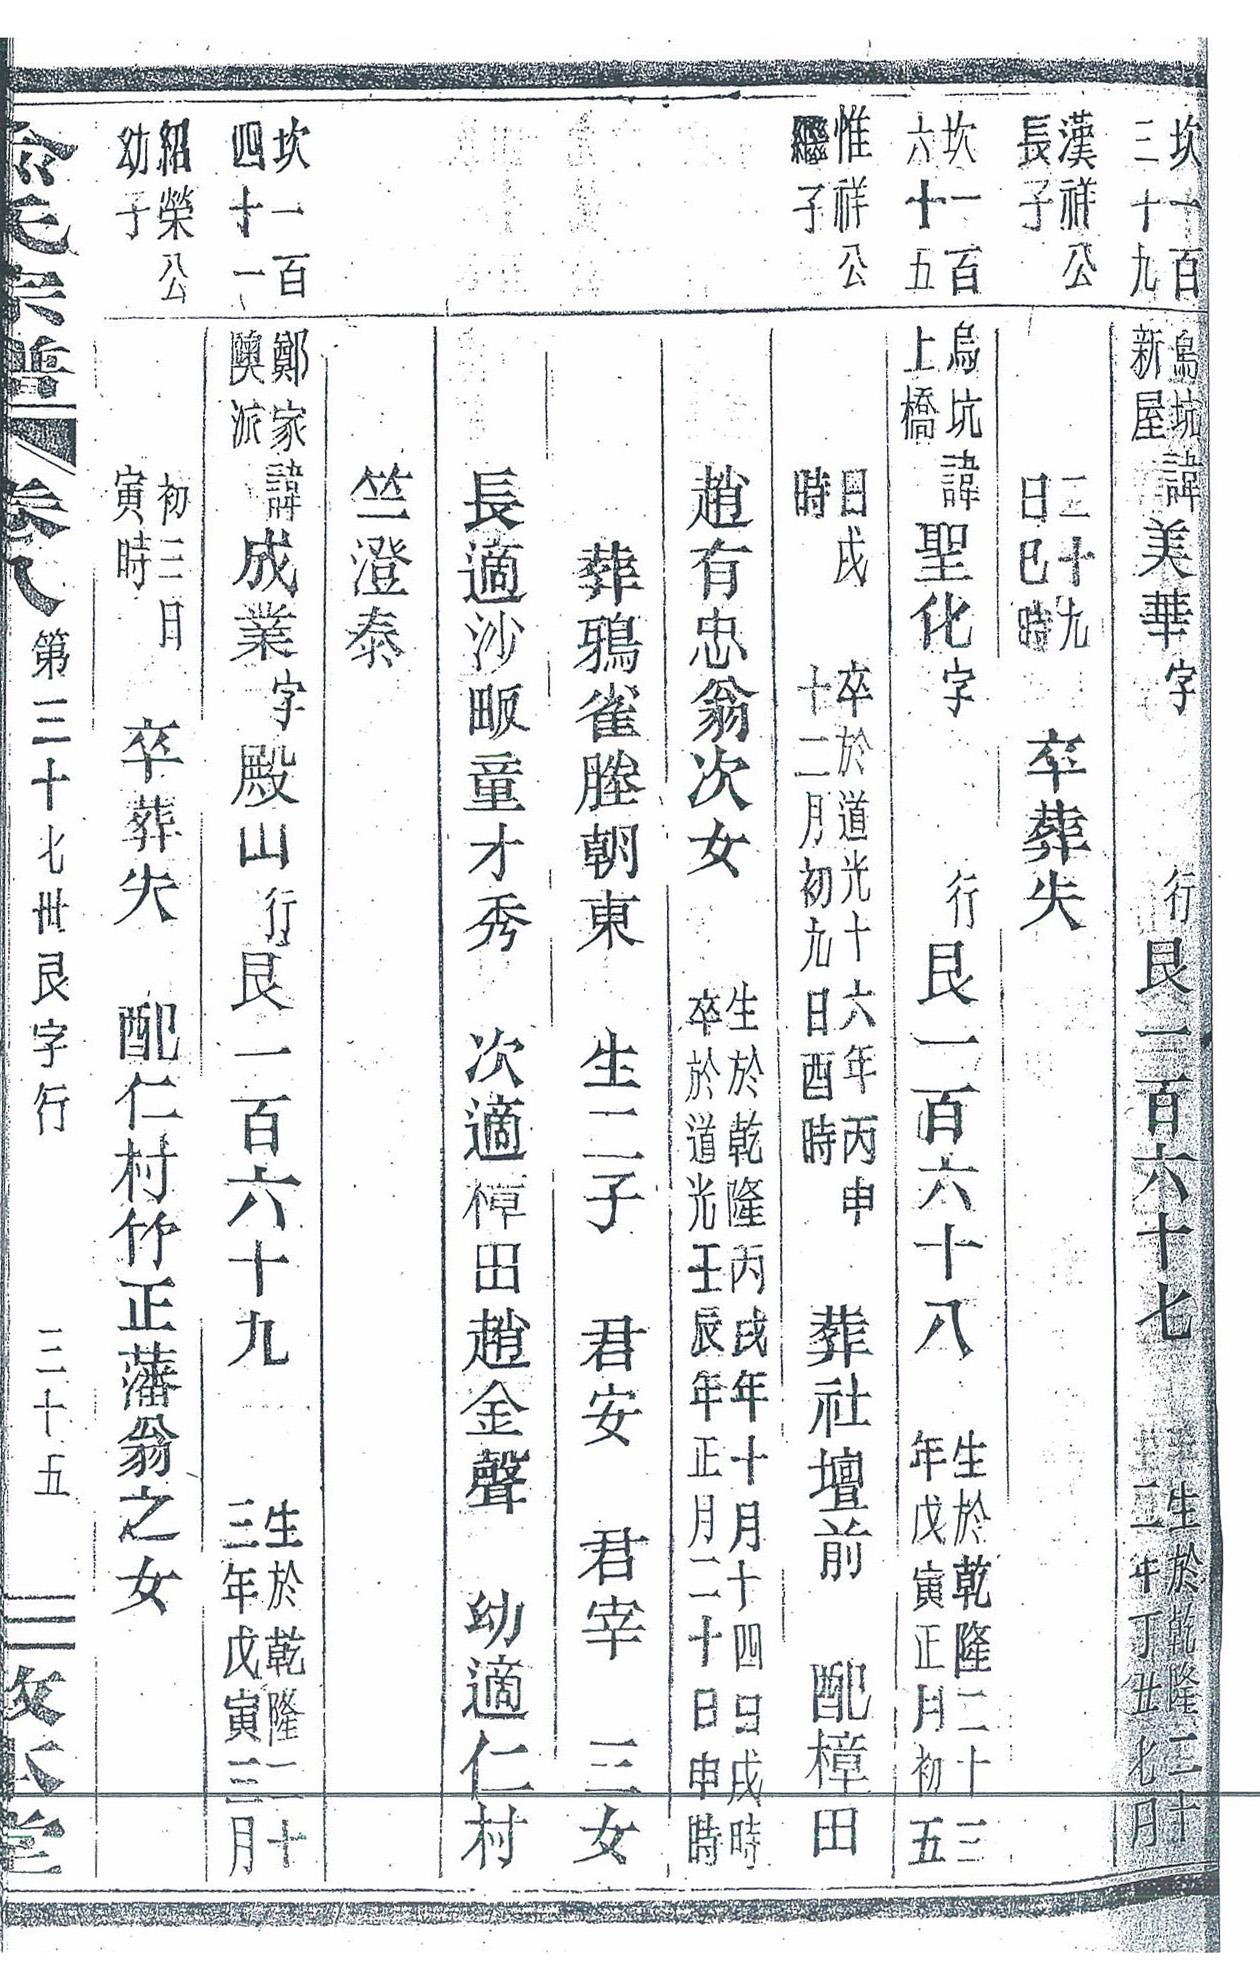 坎一百三十九
烏坑新屋 諱美華 字 行艮一百六十七 生於乾隆二十二年丁丑七月
漢祥公長子
二十九日巳時 卒葬失
坎一百六十五
烏坑上橋 諱聖化 字 行艮一百六十八 生於乾隆二十三年戊寅正月初五
惟祥公繼子
日戌時 卒於道光十六年丙申十二月初九日酉時 葬社壇前 配樟田
趙有忠翁次女 生於乾隆丙戌年十月十四日戌時卒於道光壬辰年正月二十日申時
葬鴉雀塍朝東 生二子 君安 君宰 三女
長適沙畈童才秀 次適樟田趙金聲 幼適仁村
竺澄泰
坎一百四十一
鄭家隩派 諱成業 字殿山 行艮一百六十九 生於乾隆二十三年戊寅三月
紹榮公幼子
初三日寅時 卒葬失 配仁村竹正藩翁之女
氏宗譜 卷八 第三十七卅艮字行 三十五